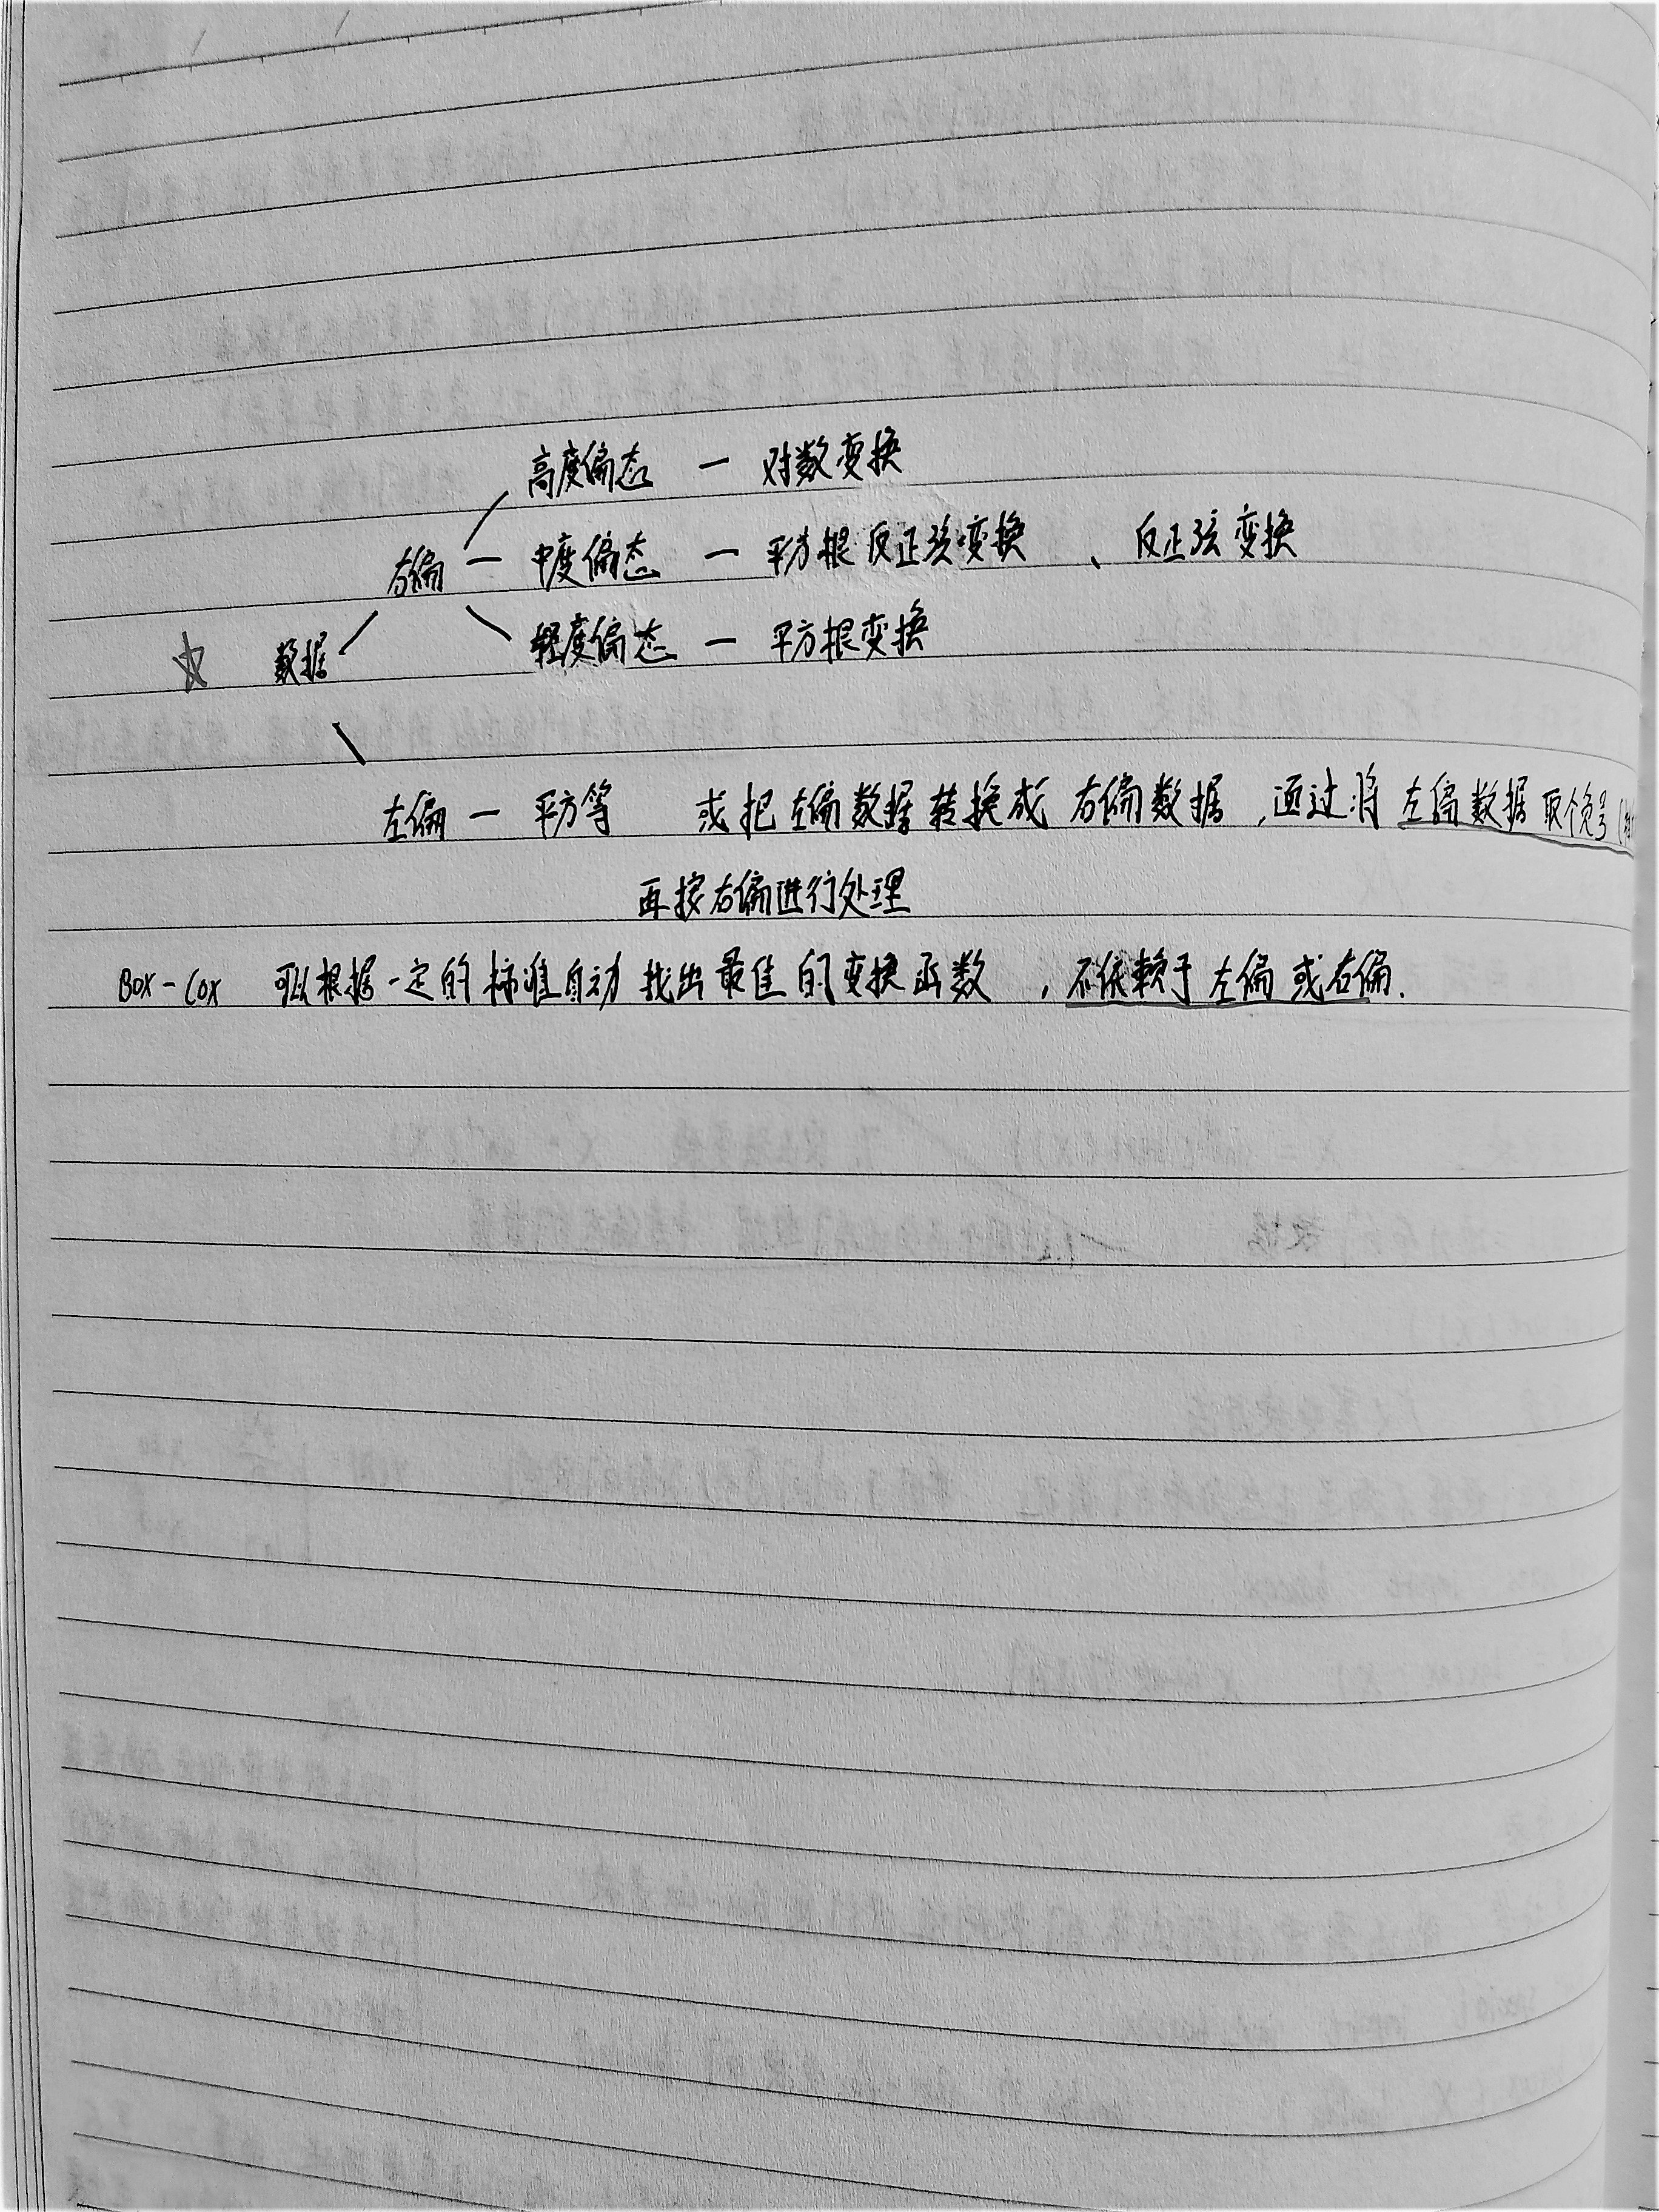 高度偏态 — 对数变换
右偏 — 中度偏态 — 平方根反正弦变换 、 反正弦变换
☆ 数据 轻度偏态 — 平方根变换
左偏 — 平方等 或把左偏数据转换成右偏数据,通过将左偏数据取个负号
再按右偏进行处理
Box-Cox 可以根据一定的标准自动找出最佳的变换函数 , 不依赖于左偏或右偏.